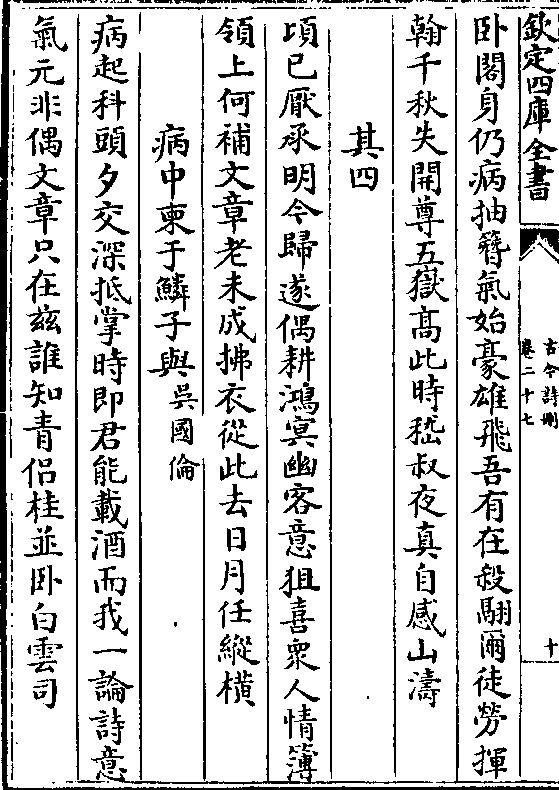 欽定四庫全書
古今詩刪
卷二十七
十
卧閣身仍病抽簪氣始豪雄飛吾有在殺翮爾徒勞揮
翰千秋失開尊五嶽髙此時嵇叔夜真自感山濤
其四
頃已厭承明今歸遂偶耕鴻㝠幽客意狙喜衆人情簿
領上何補文章老未成拂衣從此去日月任縱横
病中柬于鱗子與吳國倫
病起科頭夕交深抵掌時即君能載酒而我一論詩意
氣元非偶文章只在兹誰知青侣桂並卧白雲司